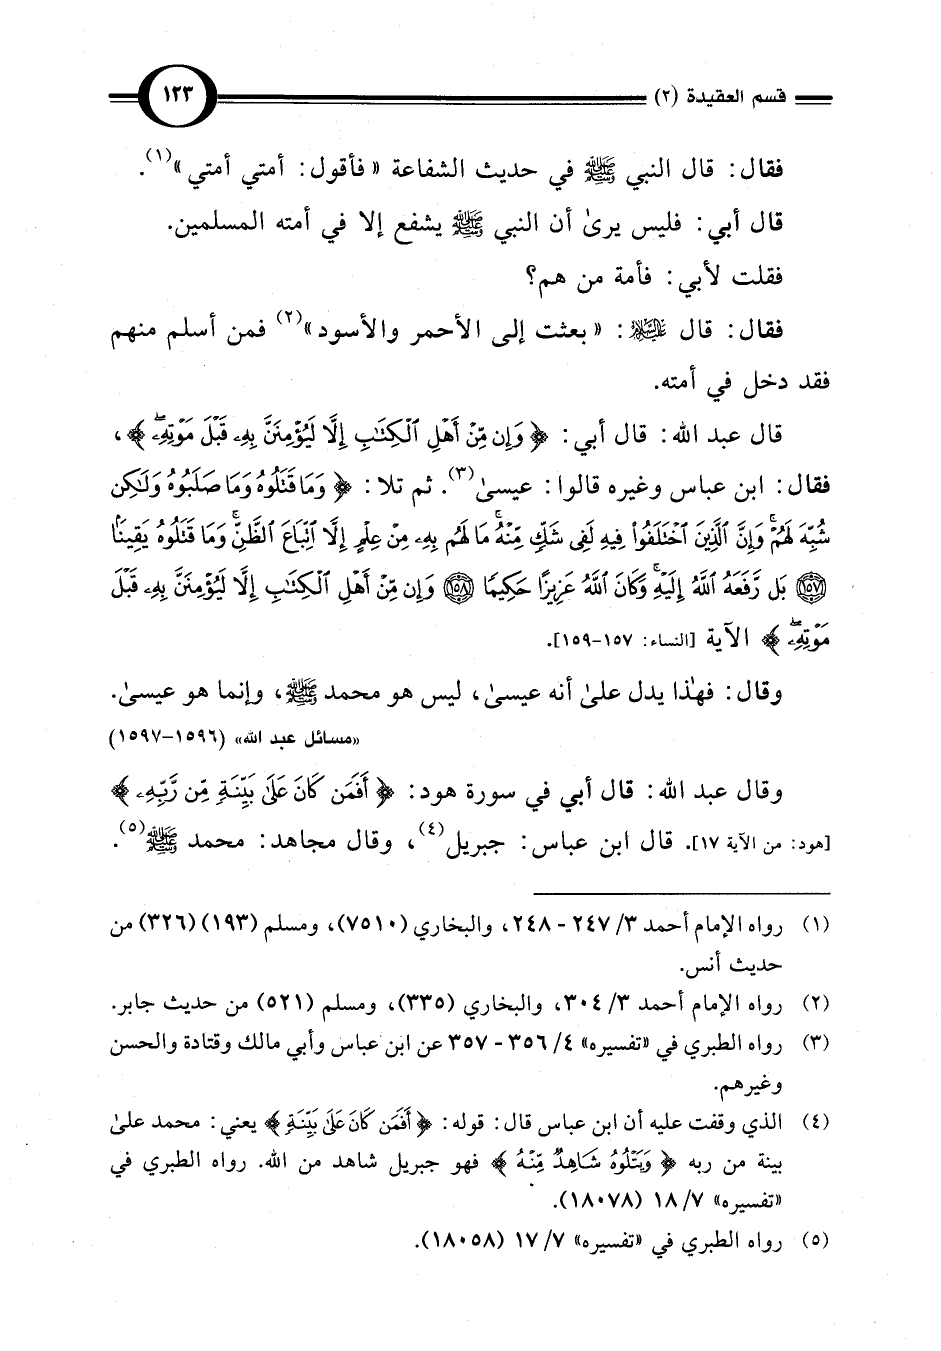 قسم العقيدة (٢) ١٢٣
فقال: قال النبي ﷺ في حديث الشفاعة «فأقول: أمتي أمتي»(١).
قال أبي: فليس يرىٰ أن النبي ﷺ يشفع إلا في أمته المسلمين.
فقلت لأبي: فأمة من هم؟
فقال: قال ﷺ: «بعثت إلى الأحمر والأسود»(٢) فمن أسلم منهم
فقد دخل في أمته.
قال عبد الله: قال أبي: ﴿وَإِن مِّنْ أَهْلِ ٱلْكِتَٰبِ إِلَّا لَيُؤْمِنَنَّ بِهِۦ قَبْلَ مَوْتِهِۦۖ﴾،
فقال: ابن عباس وغيره قالوا: عيسىٰ(٣). ثم تلا: ﴿وَمَا قَتَلُوهُ وَمَا صَلَبُوهُ وَلَٰكِن
شُبِّهَ لَهُمْۚ وَإِنَّ ٱلَّذِينَ ٱخْتَلَفُوا۟ فِيهِ لَفِى شَكٍّ مِّنْهُۚ مَا لَهُم بِهِۦ مِنْ عِلْمٍ إِلَّا ٱتِّبَاعَ ٱلظَّنِّۚ وَمَا قَتَلُوهُ يَقِينًۢا
(١٥٧) بَل رَّفَعَهُ ٱللَّهُ إِلَيْهِۚ وَكَانَ ٱللَّهُ عَزِيزًا حَكِيمًا (١٥٨) وَإِن مِّنْ أَهْلِ ٱلْكِتَٰبِ إِلَّا لَيُؤْمِنَنَّ بِهِۦ قَبْلَ
مَوْتِهِۦۖ﴾ الآية [النساء: ١٥٧-١٥٩].
وقال: فهٰذا يدل علىٰ أنه عيسىٰ، ليس هو محمد ﷺ، وإنما هو عيسىٰ.
«مسائل عبد الله» (١٥٩٦-١٥٩٧)
وقال عبد الله: قال أبي في سورة هود: ﴿أَفَمَن كَانَ عَلَىٰ بَيِّنَةٍ مِّن رَّبِّهِۦ﴾
[هود: من الآية ١٧]. قال ابن عباس: جبريل(٤)، وقال مجاهد: محمد ﷺ(٥).
(١) رواه الإمام أحمد ٣/ ٢٤٧ - ٢٤٨، والبخاري (٧٥١٠)، ومسلم (١٩٣) (٣٢٦) من
حديث أنس.
(٢) رواه الإمام أحمد ٣/ ٣٠٤، والبخاري (٣٣٥)، ومسلم (٥٢١) من حديث جابر.
(٣) رواه الطبري في «تفسيره» ٤/ ٣٥٦ - ٣٥٧ عن ابن عباس وأبي مالك وقتادة والحسن
وغيرهم.
(٤) الذي وقفت عليه أن ابن عباس قال: قوله: ﴿أَفَمَن كَانَ عَلَىٰ بَيِّنَةٍ﴾ يعني: محمد علىٰ
بينة من ربه ﴿وَيَتْلُوهُ شَاهِدٌ مِّنْهُ﴾ فهو جبريل شاهد من الله. رواه الطبري في
«تفسيره» ٧/ ١٨ (١٨٠٧٨).
(٥) رواه الطبري في «تفسيره» ٧/ ١٧ (١٨٠٥٨).